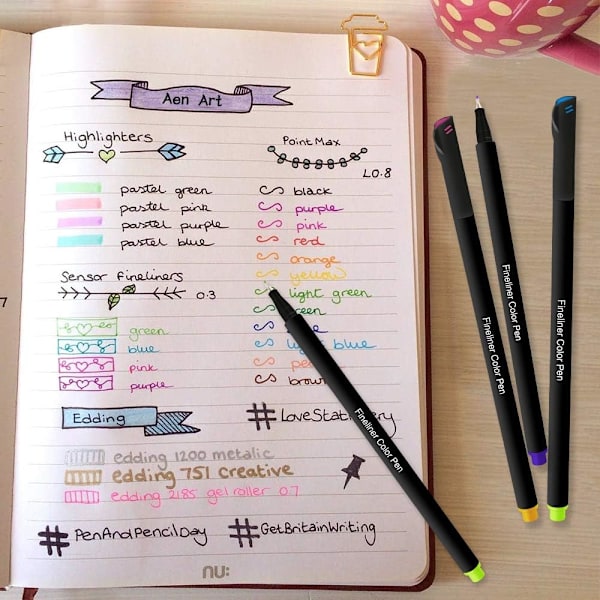 Aen Art
Highlighters
pastel green
pastel pink
pastel purple
pastel blue
Sensor Fineliners
0.3
green
blue
pink
purple
Point Max
L0.8
black
purple
pink
red
orange
yellow
light green
green
light blue
brown
Edding
#LoveStationery
edding 1200 metalic
edding 751 creative
edding 2185 gel roller 0.7
#PenAndPencilDay
#GetBritainWriting
nu:
7
Fineliner Color Pen
Fineliner Color Pen
Fineliner Color Pen
Fineliner Color Pen